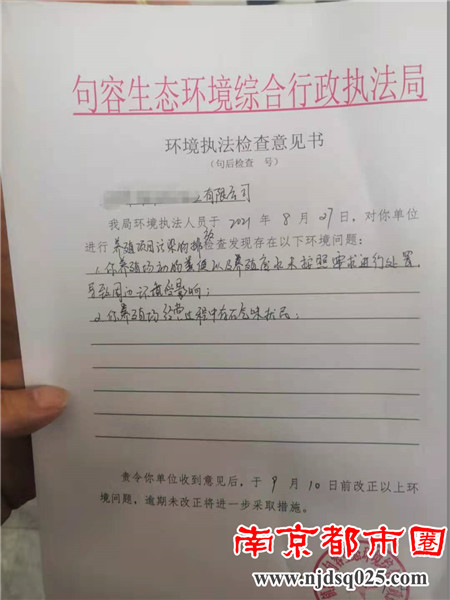 句容生态环境综合行政执法局
环境执法检查意见书
(句后检查 号)
有限公司
我局环境执法人员于 2021 年 8 月 27 日,对你单位
进行 养殖项目污染物排放 检查发现存在以下环境问题:
1.你养殖场动物粪便以及养殖废水未按照要求进行处置
导致周边环境受影响;
2.你养殖场经营过程中有恶臭味扰民。
责令你单位收到意见后,于 9 月 10 日前改正以上环
境问题,逾期未改正将进一步采取措施。
南京都市圈
www.njdsq025.com